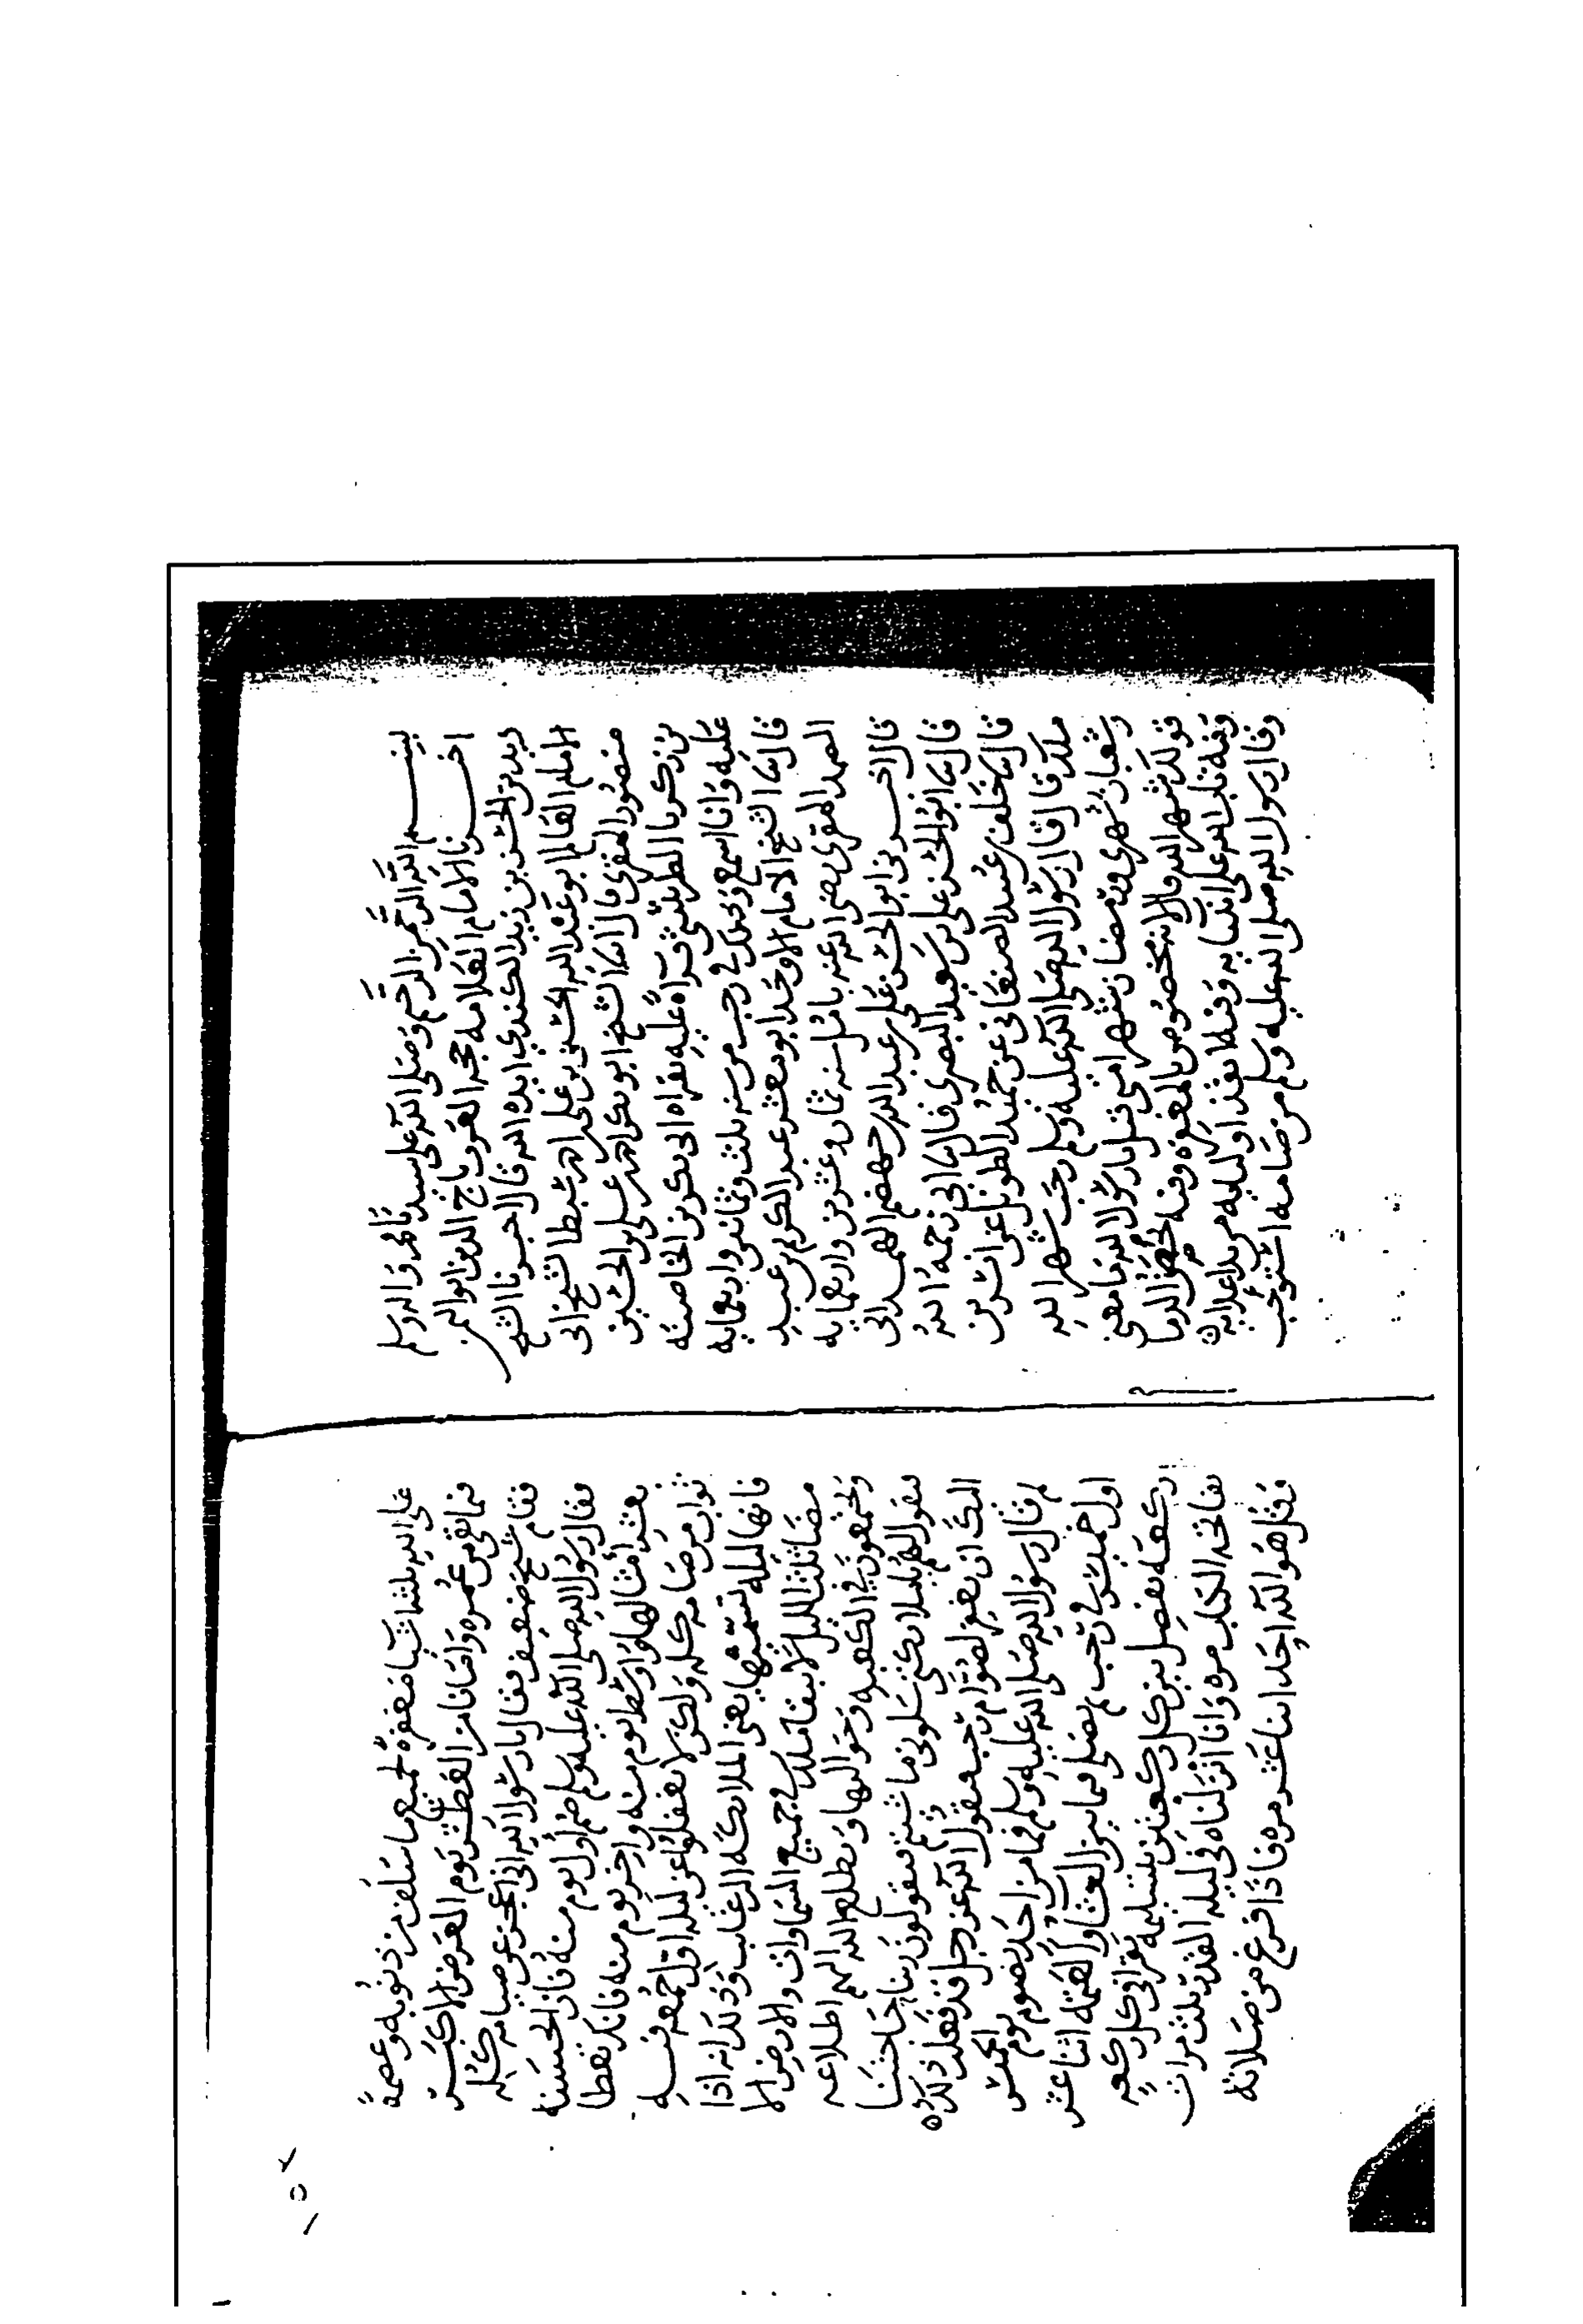 بسم الله الرحمن الرحيم وصلى الله على سيدنا محمد واله وسلم
اخبرنا الامام العلامه حجه العرب تاج الدين ابو اليمن
زيد بن الحسن بن زيد الكندي ايده الله قال اخبرنا الشيخ
الامام العالم ابو عبد الله الحسين بن علي بن احمد سبط الشيخ ابي
منصور المقري قال انا الشيخ ابو بكر احمد بن علي بن الحسين
بن زكريا الطريثيثي قراة عليه بقراه ابي بكر بن الخاضبه
عليه وانا اسمع وذلك في رجب من سنه ثلث وثمانين واربعمايه
قال ثنا الشيخ الامام الاوحد ابو معشر عبد الكريم بن عبد
الصمد المقري رضي الله عنه بامل سنه ثمان وعشرين واربعمايه
قال اخبرني ابو الحسن علي بن عبد الله بن جهضم الهمداني
قال ثنا ابو الحسن علي بن سعيد البصري قال ثنا ابي رحمه الله
قال ثنا خلف بن عبد الله الصنعاني عن حميد الطويل عن انس بن
ملك قال قال رسول الله صلى الله عليه وسلم رجب شهر الله
وشعبان شهري ورمضان شهر امتي قيل يا رسول الله ما معنى
قولك شهر الله قال لانه مخصوص بالمغفره وفيه تحقن الدما
وفيه تاب الله على انبيايه وفيه انقذ اولياه من بلا اعدايه
وقال رسول الله صلى الله عليه وسلم من صامه استوجب
على الله ثلثة اشيا مغفرة لجميع ما سلف من ذنوبه وعصمة
فيما بقي من عمره وامانا من العطش يوم العرض الاكبر
فقام شيخ ضعيف فقال يا رسول الله اني اعجز عن صيامه كله
فقال رسول الله صلى الله عليه وسلم صم اول يوم منه فان الحسنة
بعشر امثالها واوسط يوم منه واخر يوم منه فانك تعطا
ثواب من صامه كله ولكن لا تغفلوا عن ليلة اول جمعه فيه
فانها ليله تسميها يعني الملائكه الرغايب وذلك انه اذا
مضا ثلثا الليل لا يبقا ملك في جميع السماوات والارض الا
ويجتمعون في الكعبه وحواليها ويطلع الله اليهم اطلاعه
فيقول لهم يا ملائكتي سلوني ما شئتم فيقولون ربنا حاجتنا
اليك ان تغفر لصوام رجب فيقول الله عز وجل قد فعلت ذلك
ثم قال رسول الله صلى الله عليه وسلم فما من احد يصوم يوم الخميس
اول خميس في رجب ثم يصلي فيما بين العشا والعتمه اثنا عشر
ركعه يفصل بين كل ركعتين بتسليمه يقرا في كل ركعه
بفاتحه الكتاب مره وانا انزلناه في ليله القدر ثلث مرات
وقل هو الله احد اثنا عشر مره فاذا فرغ من صلاته
١٥٢